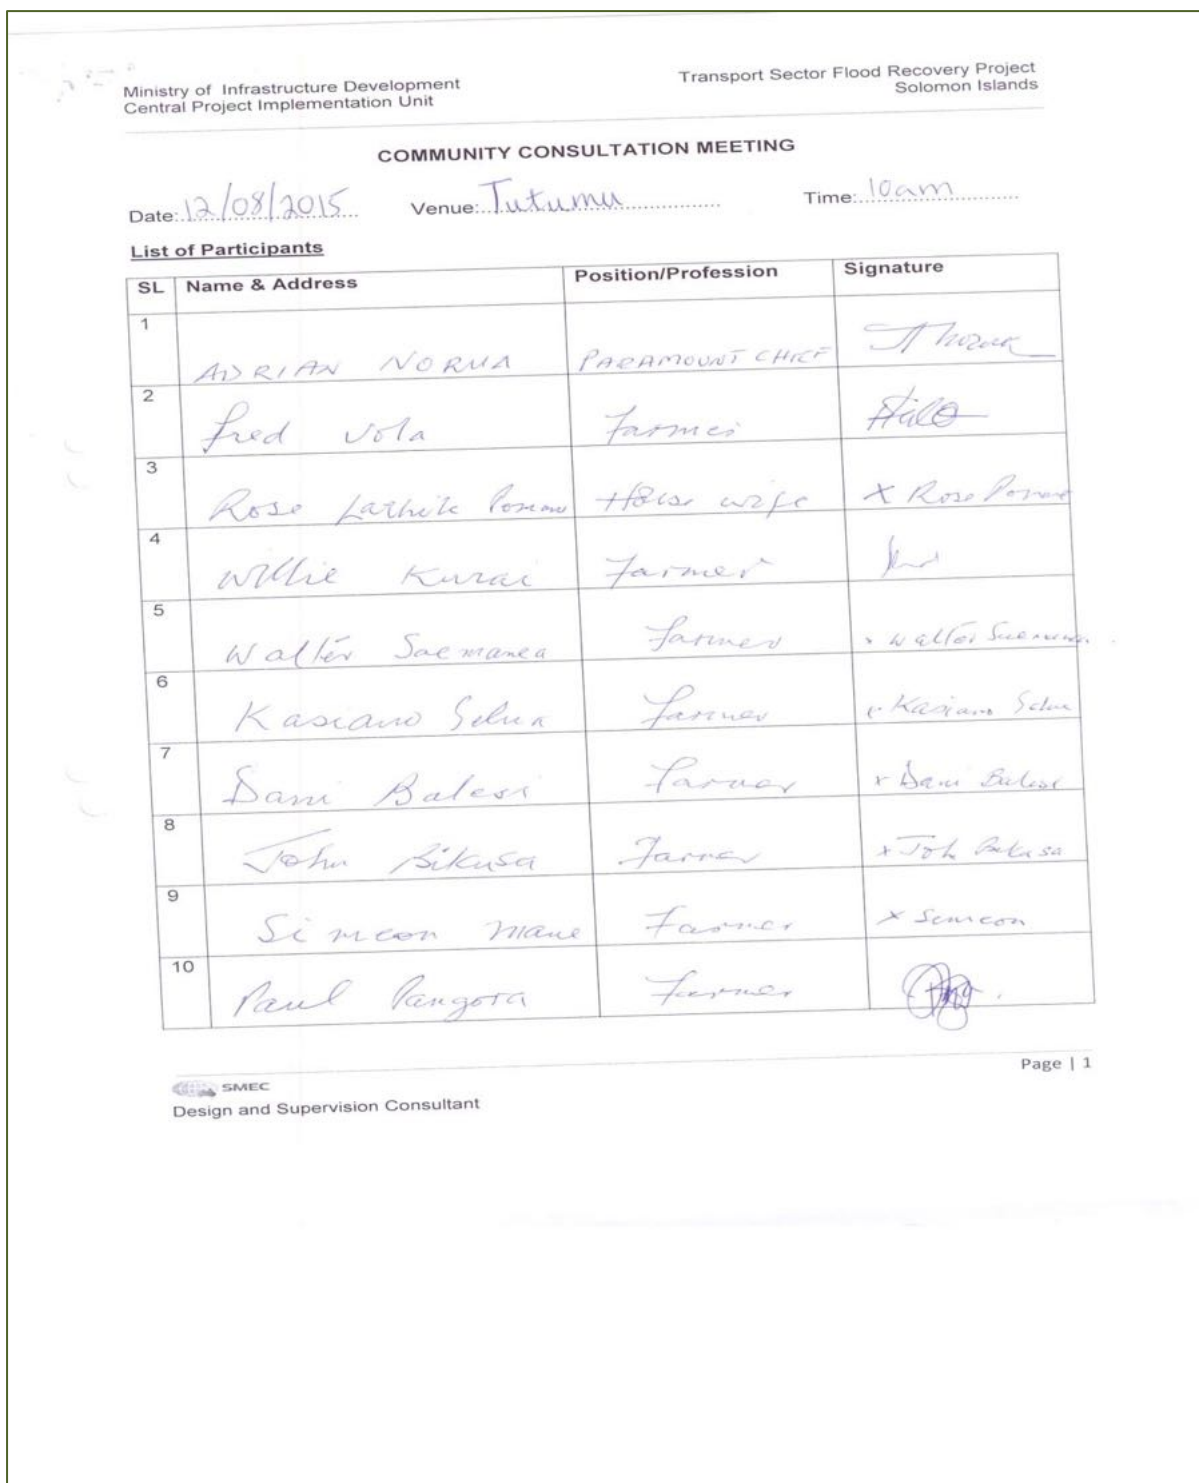 Ministry of Infrastructure Development
Central Project Implementation Unit
Transport Sector Flood Recovery Project
Solomon Islands
COMMUNITY CONSULTATION MEETING
Date: 12/08/2015 Venue: Tutumu Time: 10am
List of Participants
SL Name & Address Position/Profession Signature
1 ADRIAN NORUA PARAMOUNT CHIEF
2 Fred Vola Farmer
3 Rose House wife X Rose
4 Willie Kurai Farmer
5 Walter Saemanea Farmer x Walter
6 Kasiano Selua Farmer x Kasiano
7 Dani Balesi Farmer x Dani Balesi
8 John Bikusa Farmer x
9 Simeon Mane Farmer x Simeon
10 Paul Pangora Farmer
Page | 1
SMEC
Design and Supervision Consultant